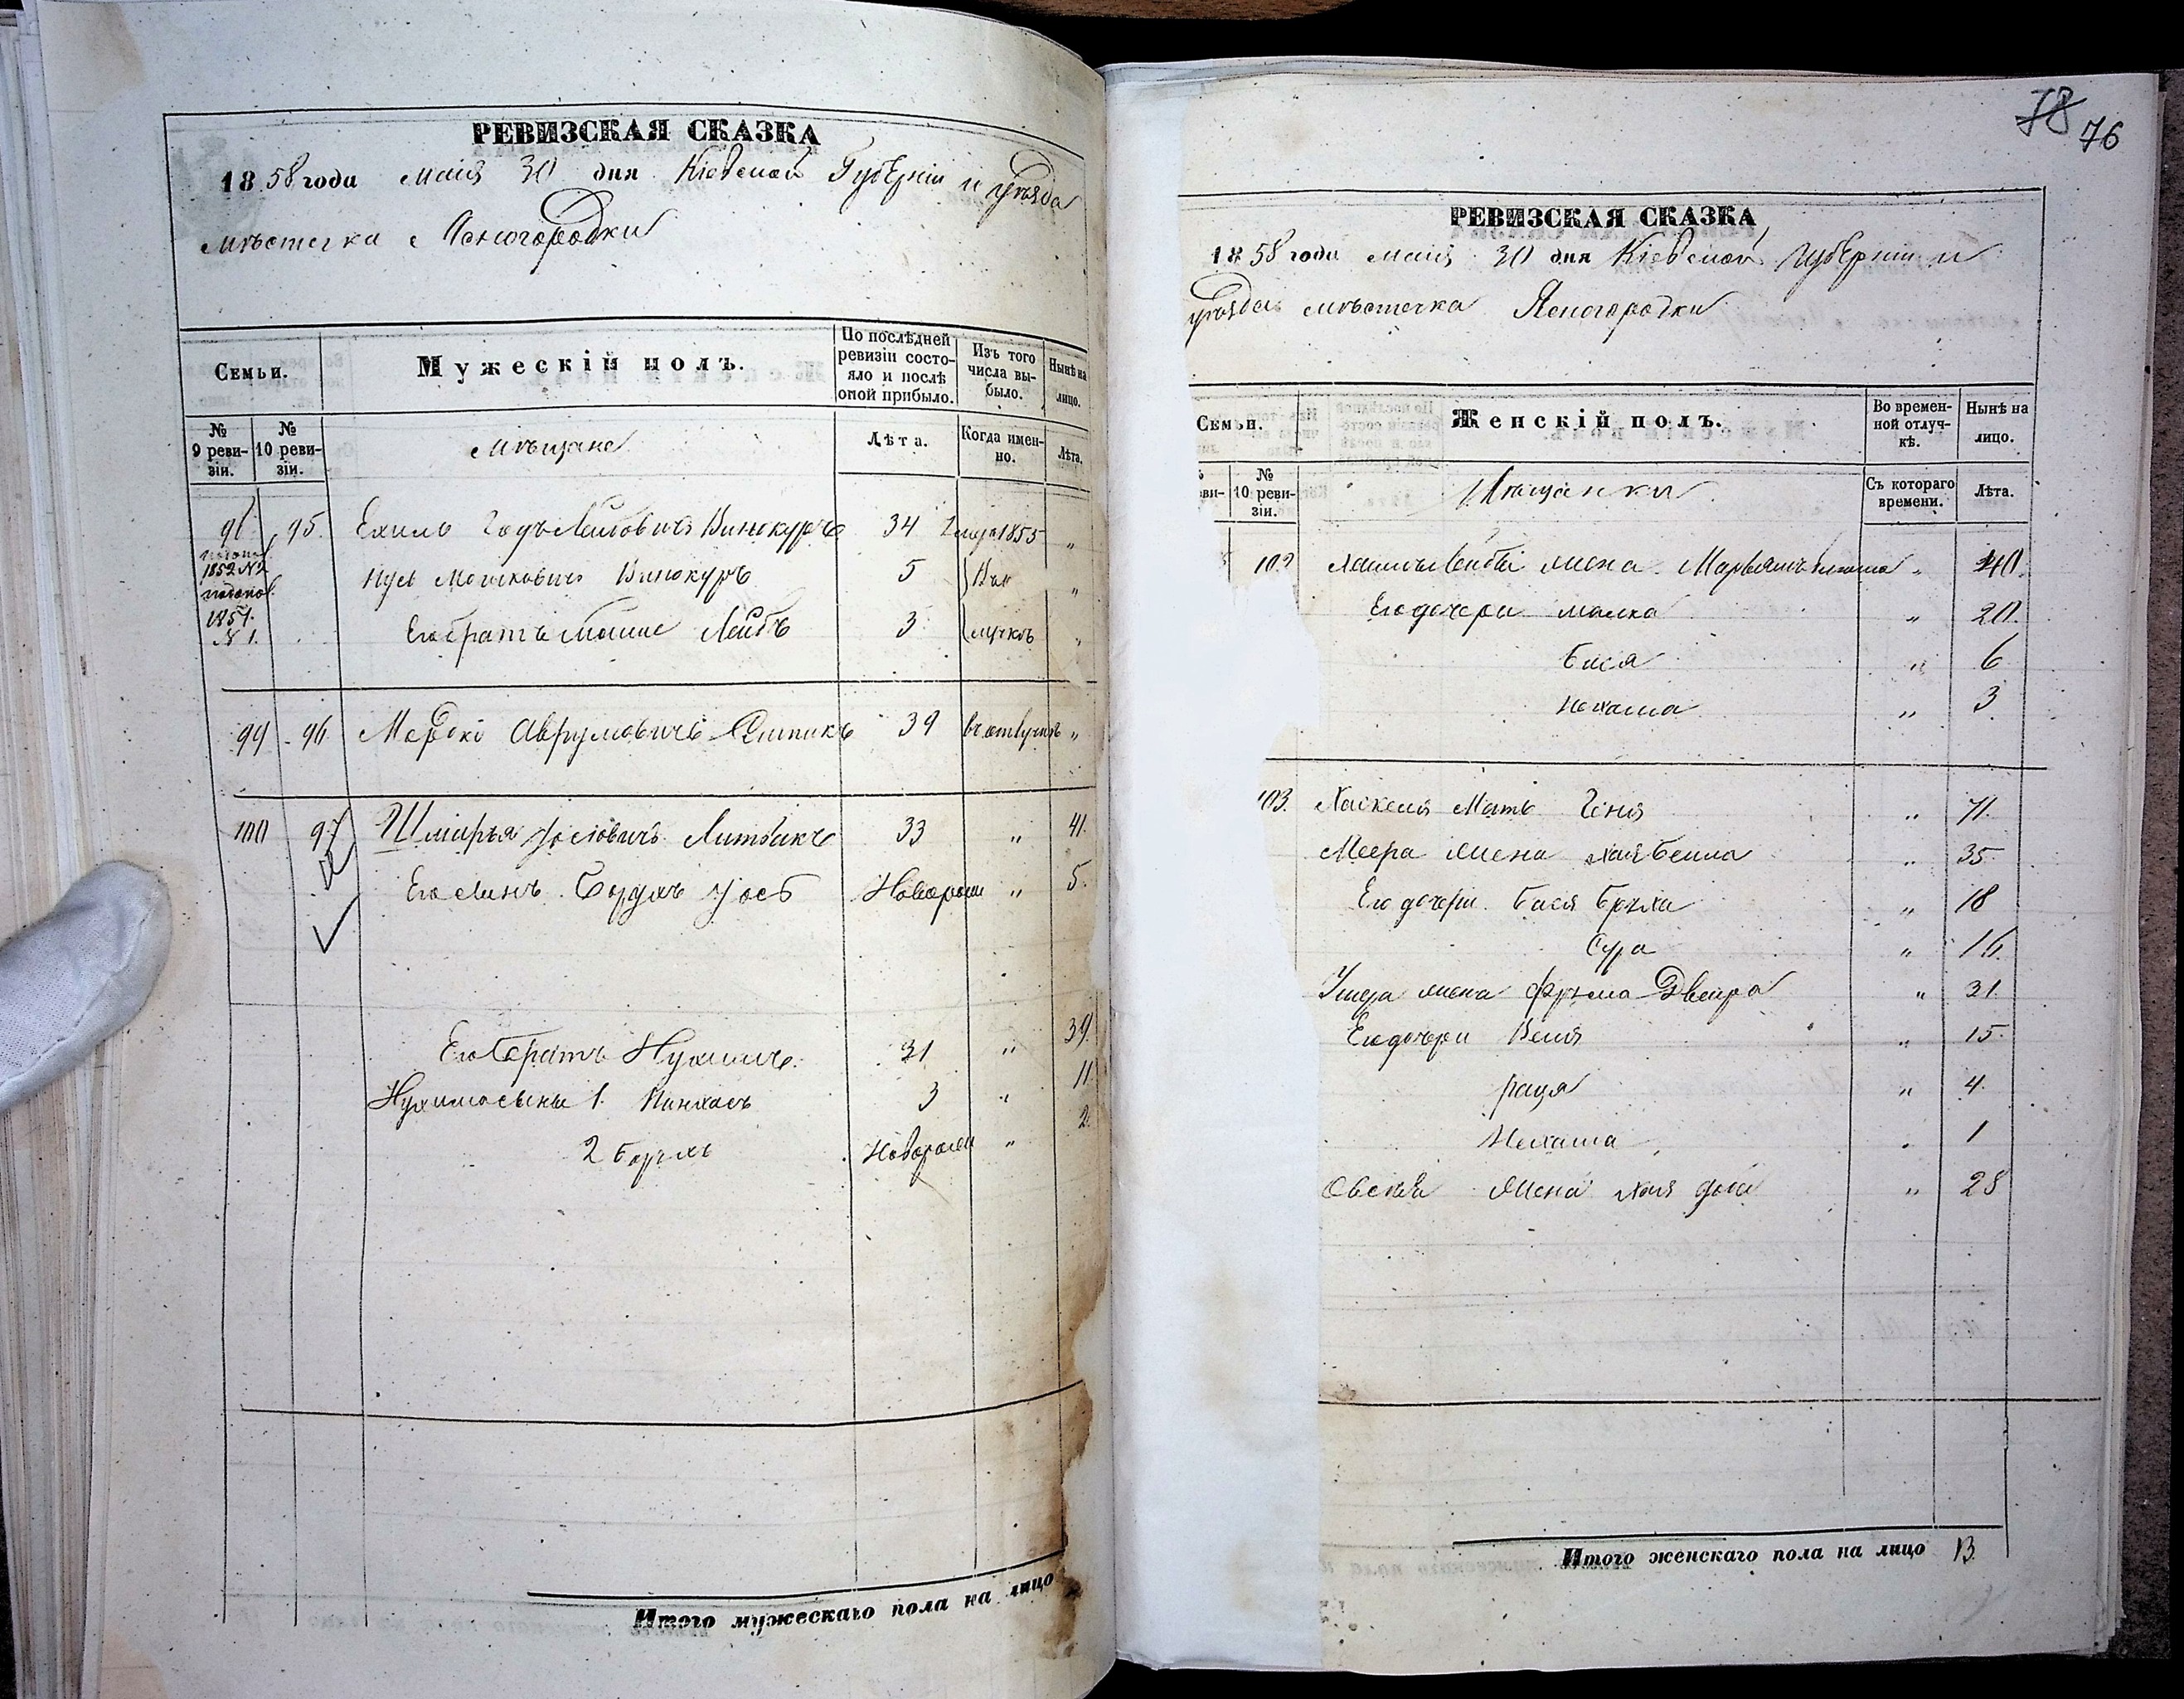 РЕВИЗСКАЯ СКАЗКА
1858 года маія 30 дня Кіевской Губерніи и уѣзда
мѣстечка Ясногородки
Семьи.
Мужескій полъ.
По послѣдней ревизіи состояло и послѣ оной прибыло.
Изъ того числа выбыло.
Нынѣ на лицо.
№ 9 ревизіи.
№ 10 ревизіи.
Мѣщане
Лѣта.
Когда именно.
Лѣта.
95. Винокуръ 34 1855 "
1852 №2
Мошковичъ Винокуръ 5 "
1854. №1. Его братъ Мошко Лейбъ 3 "
99 96 Мордко Аврумовичъ 39 "
100 97 Шмарья Іосіовичъ Литвакъ 33 " 41.
Его сынъ Борухъ Іосъ Новорож " 5.
Его братъ Нухимъ. 31 " 39.
Нухима сыны 1. Пинхасъ 3 " 11
2 Борухъ Новорож " 2.
Итого мужескаго пола на лицо
78 76
РЕВИЗСКАЯ СКАЗКА
1858 года маія 30 дня Кіевской Губерніи и
уѣзда мѣстечка Ясногородки
Семьи.
Женскій полъ.
Во временной отлучкѣ.
Нынѣ на лицо.
№ 10 ревизіи.
Мѣщанки
Съ котораго времени.
Лѣта.
102 жена " 40.
Его дочери Малка " 20.
Бася " 6
Нехама " 3
103. Хаскеля Мать Геня " 71.
Меера жена Хая Бейла " 35.
Его дочери Бася Бруха " 18
Сура " 16.
жена Фрума Двейра " 31.
Его дочери Веля " 15.
Рася " 4.
Нехама " 1
Овсѣя жена Хая " 28
Итого женскаго пола на лицо 13.